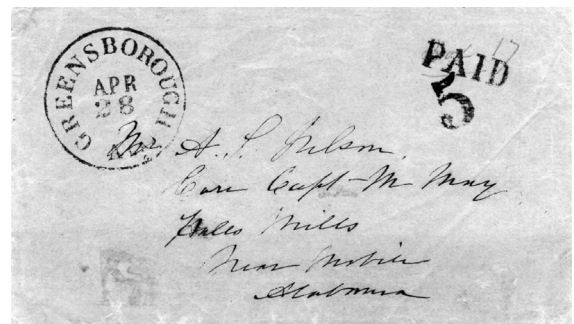 GREENSBOROUGH
APR
28
PAID
5
17
Mr. A. S. Wilson,
Care Capt M May
Hales Mills
Near Mobile
Alabama